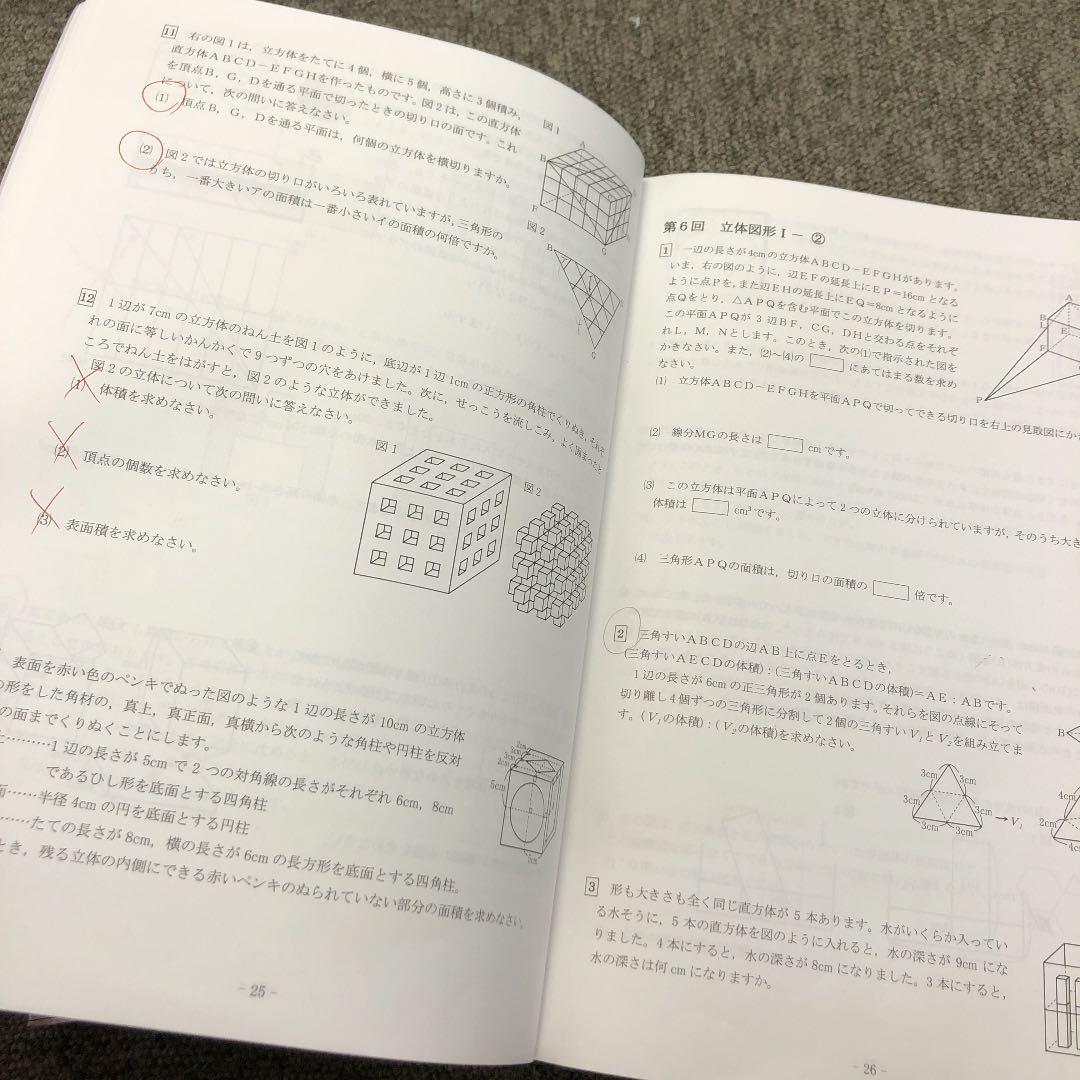 11 右の図1は，立方体をたてに4個，横に5個，高さに3個積み，
直方体ABCD－EFGHを作ったものです。図2は，この直方体
を頂点B，G，Dを通る平面で切ったときの切り口の面です。これ
について，次の問いに答えなさい。
(1) 頂点B，G，Dを通る平面は，何個の立方体を横切りますか。
(2) 図2では立方体の切り口がいろいろ表れていますが，三角形の
うち，一番大きいアの面積は一番小さいイの面積の何倍ですか。
図1
A
B
F
G
図2
B
G
12 1辺が7cmの立方体のねん土を図1のように，底辺が1辺1cmの正方形の角柱でくりぬき，それぞ
れの面に等しいかんかくで9つずつの穴をあけました。次に，せっこうを流しこみ，よく固まったと
ころでねん土をはがすと，図2のような立体ができました。
図2の立体について次の問いに答えなさい。
(1) 体積を求めなさい。
(2) 頂点の個数を求めなさい。
(3) 表面積を求めなさい。
図1
図2
表面を赤い色のペンキでぬった図のような1辺の長さが10cmの立方体
の形をした角材の，真上，真正面，真横から次のような角柱や円柱を反対
の面までくりぬくことにします。
………1辺の長さが5cmで2つの対角線の長さがそれぞれ6cm，8cm
であるひし形を底面とする四角柱
面……半径4cmの円を底面とする円柱
………たての長さが8cm，横の長さが6cmの長方形を底面とする四角柱。
とき，残る立体の内側にできる赤いペンキのぬられていない部分の面積を求めなさい。
5cm
－25－
第6回 立体図形Ⅰ－②
1 一辺の長さが4cmの立方体ABCD－EFGHがあります。
いま，右の図のように，辺EFの延長上にEP＝16cmとなる
ように点Pを，また辺EHの延長上にEQ＝8cmとなるように
点Qをとり，△APQを含む平面でこの立方体を切ります。
この平面APQが3辺BF，CG，DHと交わる点をそれぞ
れL，M，Nとします。このとき，次の(1)で指示された図を
かきなさい。また，(2)～(4)の□にあてはまる数を求め
なさい。
(1) 立方体ABCD－EFGHを平面APQで切ってできる切り口を右上の見取図にか
(2) 線分MGの長さは□cmです。
(3) この立方体は平面APQによって2つの立体に分けられていますが，そのうち大き
体積は□cm³です。
(4) 三角形APQの面積は，切り口の面積の□倍です。
A
B
L
E
F
P
2 三角すいABCDの辺AB上に点Eをとるとき，
(三角すいAECDの体積)：(三角すいABCDの体積)＝AE：ABです。
1辺の長さが6cmの正三角形が2個あります。それらを図の点線にそって
切り離し4個ずつの三角形に分割して2個の三角すいV₁とV₂を組み立てま
す。(V₁の体積)：(V₂の体積)を求めなさい。
B
3cm 3cm
3cm 3cm
3cm 3cm
→V₁
4cm
2cm
4c
3 形も大きさも全く同じ直方体が5本あります。水がいくらか入ってい
る水そうに，5本の直方体を図のように入れると，水の深さが9cmにな
りました。4本にすると，水の深さが8cmになりました。3本にすると，
水の深さは何cmになりますか。
－26－